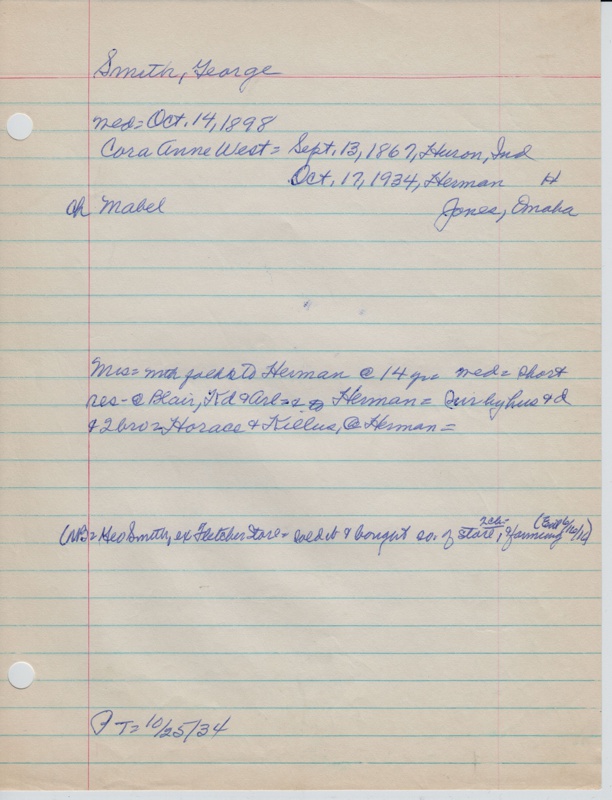 Smith, George
med = Oct. 14, 1898
Cora Anne West = Sept. 13, 1867, Huron, Ind
Oct. 17, 1934, Herman H
ch Mabel Jones, Omaha
Mrs = mvd folks to Herman @ 14 yr. med = short
res - @ Blair, Kd & Arl = to Herman = Sur by hus & d
& 2 bro = Horace & Killus, @ Herman =
(NB = Geo Smith, ex Fletcher Store = sold it & bought so. of store, & farming
PT = 10/25/34